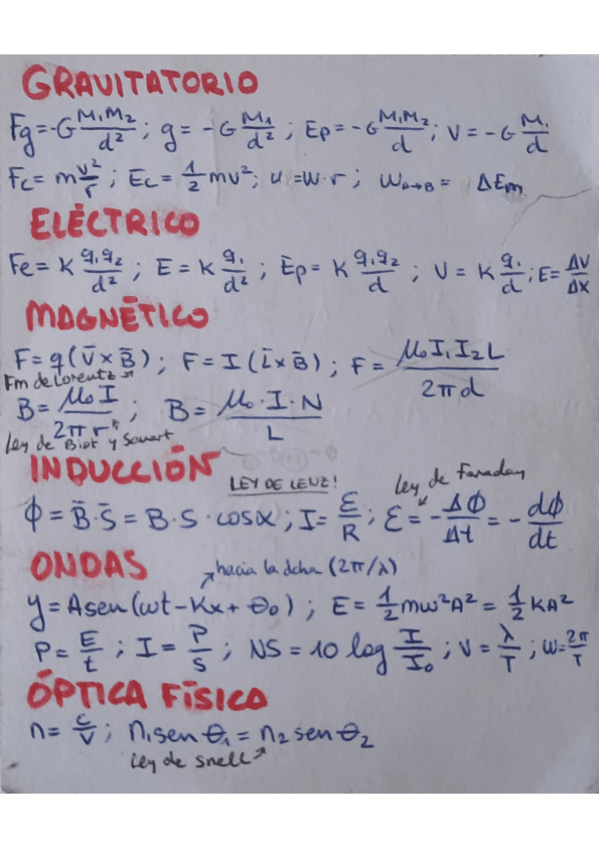 GRAVITATORIO
Fg=-G M₁M₂/d² ; g = -G M₁/d² ; Ep = -G M₁M₂/d ; V = -G M₁/d
Fc= m v²/r ; Ec = 1/2 mv² ; u =W·r ; W A→B = ΔEm
ELÉCTRICO
Fe = K q₁q₂/d² ; E = K q₁/d² ; Ep = K q₁q₂/d ; V = K q₁/d ; E= ΔV/Δx
MAGNÉTICO
F = q(V̄ x B̄) ; F = I (L̄ x B̄) ; F = μ₀ I₁ I₂ L/2π d
Fm de Lorentz
B = μ₀ I/2π r ; B = μ₀·I·N/L
Ley de Biot y Savart
INDUCCIÓN
LEY DE LENZ!
Ley de Faraday
ϕ = B̄·S̄ = B·S·cosα ; I = ε/R ; ε = -Δϕ/Δt = -dϕ/dt
ONDAS
hacia la dcha (2π/λ)
y = Asen (ωt - Kx + θ₀) ; E = 1/2 mω²A² = 1/2 KA²
P = E/t ; I = P/S ; NS = 10 log I/I₀ ; V = λ/T ; ω= 2π/T
ÓPTICA FÍSICA
n = c/v ; n₁sen θ₁ = n₂ sen θ₂
Ley de Snell